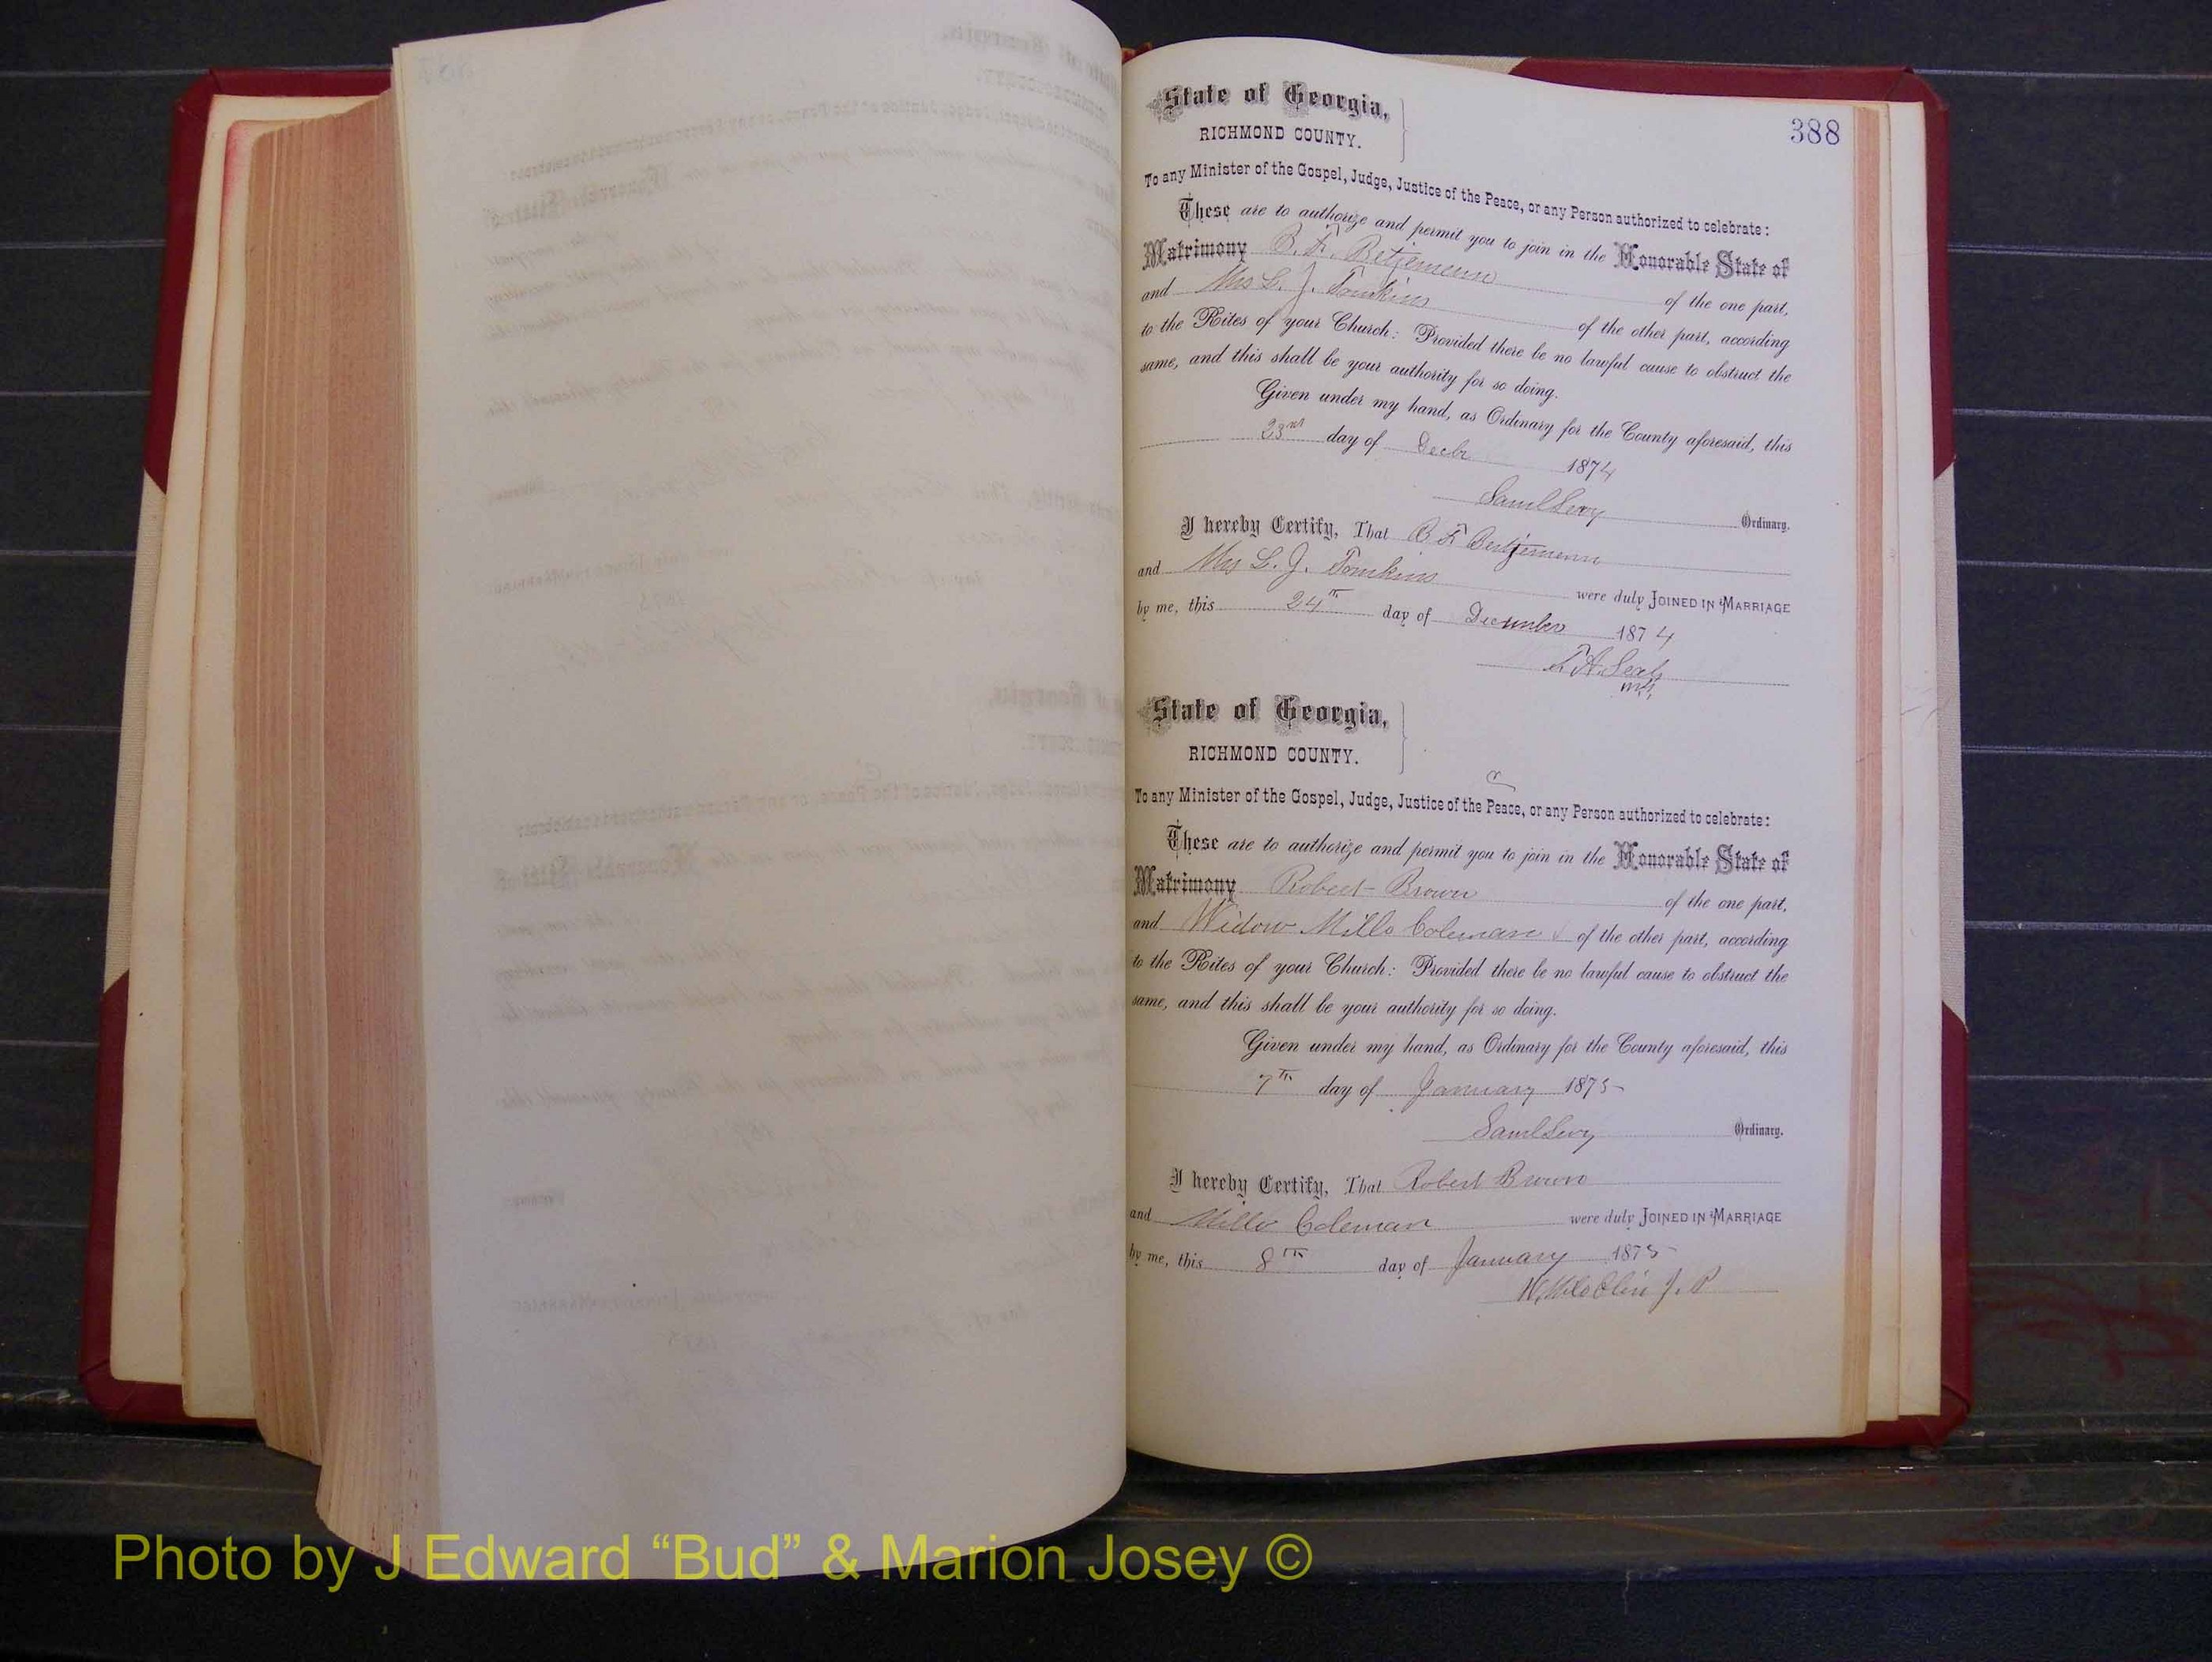 388
State of Georgia,
RICHMOND COUNTY.
To any Minister of the Gospel, Judge, Justice of the Peace, or any Person authorized to celebrate:
These are to authorize and permit you to join in the Honorable State of
Matrimony B. F. Betjemann of the one part,
and Mrs L. J. Tomkins of the other part, according
to the Rites of your Church: Provided there be no lawful cause to obstruct the
same, and this shall be your authority for so doing.
Given under my hand, as Ordinary for the County aforesaid, this
23rd day of Decbr 1874
Saml Levy Ordinary.
I hereby Certify, That B F Betjemann
and Mrs L. J. Tomkins were duly JOINED IN MARRIAGE
by me, this 24th day of December 1874
T. A. Seals
State of Georgia,
RICHMOND COUNTY.
C
To any Minister of the Gospel, Judge, Justice of the Peace, or any Person authorized to celebrate:
These are to authorize and permit you to join in the Honorable State of
Matrimony Robert Brown of the one part,
and Widow Mills Coleman of the other part, according
to the Rites of your Church: Provided there be no lawful cause to obstruct the
same, and this shall be your authority for so doing.
Given under my hand, as Ordinary for the County aforesaid, this
7th day of January 1875
Saml Levy Ordinary.
I hereby Certify, That Robert Brown
and Mills Coleman were duly JOINED IN MARRIAGE
by me, this 8th day of January 1875
J. P
Photo by J Edward “Bud” & Marion Josey ©